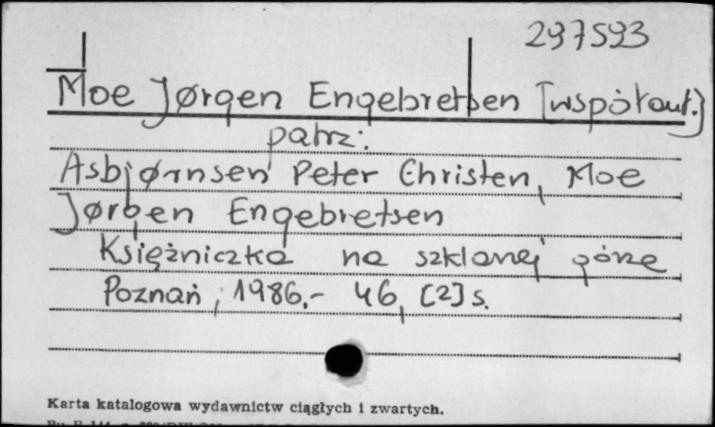 297593
Moe Jørgen Engebretsen [współaut.]
patrz:
Asbjørnsen Peter Christen, Moe
Jørgen Engebretsen
Księżniczka na szklanej górze
Poznań, 1986.- 46, [2] s.
Karta katalogowa wydawnictw ciągłych i zwartych.